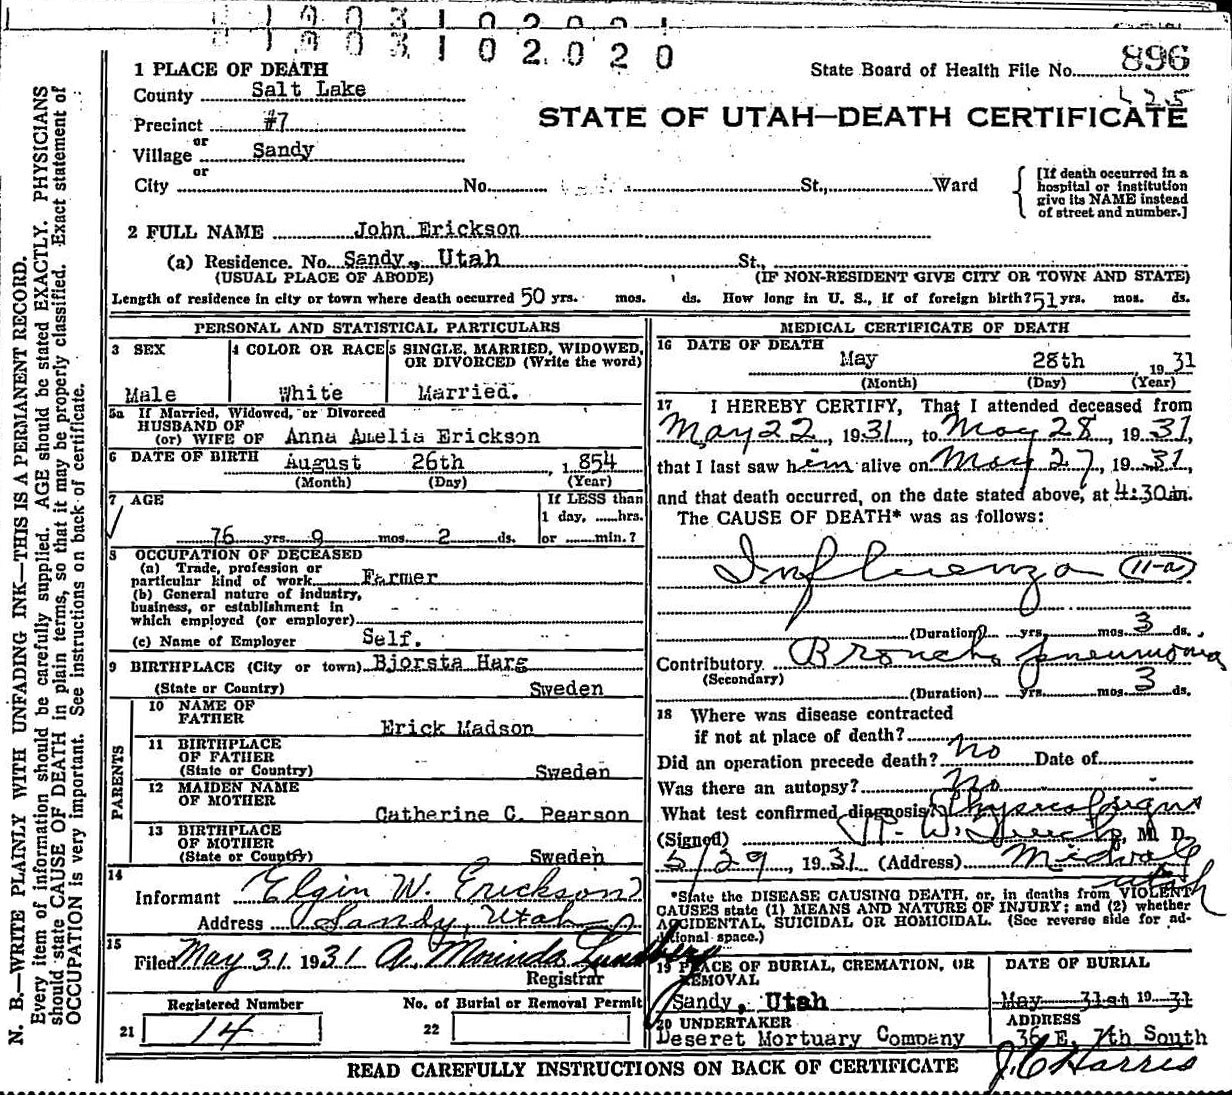 1003102021
1003102020
State Board of Health File No. 896
425
STATE OF UTAH—DEATH CERTIFICATE
1 PLACE OF DEATH
County Salt Lake
Precinct #7
or
Village Sandy
or
City No. St., Ward
[If death occurred in a hospital or institution give its NAME instead of street and number.]
2 FULL NAME John Erickson
(a) Residence. No. Sandy, Utah St.,
(USUAL PLACE OF ABODE) (IF NON-RESIDENT GIVE CITY OR TOWN AND STATE)
Length of residence in city or town where death occurred 50 yrs. mos. ds. How long in U. S., if of foreign birth? 51 yrs. mos. ds.
PERSONAL AND STATISTICAL PARTICULARS
3 SEX
Male
4 COLOR OR RACE
White
5 SINGLE, MARRIED, WIDOWED, OR DIVORCED (Write the word)
Married.
5a If Married, Widowed, or Divorced
HUSBAND OF
(or) WIFE OF Anna Amelia Erickson
6 DATE OF BIRTH August 26th, 1854
(Month) (Day) (Year)
7 AGE
76 yrs. 9 mos. 2 ds.
If LESS than
1 day, ......hrs.
or .......min.?
8 OCCUPATION OF DECEASED
(a) Trade, profession or
particular kind of work Farmer
(b) General nature of industry,
business, or establishment in - -
which employed (or employer)
(c) Name of Employer Self.
9 BIRTHPLACE (City or town) Bjorsta Harg
(State or Country) Sweden
PARENTS
10 NAME OF
FATHER
Erick Madson
11 BIRTHPLACE
OF FATHER
(State or Country) Sweden
12 MAIDEN NAME
OF MOTHER
Catherine C. Pearson
13 BIRTHPLACE
OF MOTHER
(State or Country) Sweden
14
Informant Elgin W. Erickson
Address Sandy, Utah
15
Filed May 31 1931 A. Lundberg
Registrar
Registered Number
21 14
No. of Burial or Removal Permit
22
MEDICAL CERTIFICATE OF DEATH
16 DATE OF DEATH
May 28th 1931
(Month) (Day) (Year)
17 I HEREBY CERTIFY, That I attended deceased from
May 22, 1931, to May 28, 1931,
that I last saw him alive on May 27, 1931,
and that death occurred, on the date stated above, at 4:30 m.
The CAUSE OF DEATH* was as follows:
Influenza 11-a
(Duration) yrs. mos. 3 ds.
Contributory Broncho pneumonia
(Secondary)
(Duration) yrs. mos. 3 ds.
18 Where was disease contracted
if not at place of death?
Did an operation precede death? No Date of
Was there an autopsy? No
What test confirmed diagnosis? Physical signs
(Signed) M. D.
5/29, 1931 (Address) Midvale
Utah
*State the DISEASE CAUSING DEATH, or, in deaths from VIOLENT
CAUSES state (1) MEANS AND NATURE OF INJURY; and (2) whether
ACCIDENTAL, SUICIDAL OR HOMICIDAL. (See reverse side for ad-
ditional space.)
19 PLACE OF BURIAL, CREMATION, OR
REMOVAL
Sandy, Utah
DATE OF BURIAL
May 31st 1931
20 UNDERTAKER
Deseret Mortuary Company
ADDRESS
36 E. 7th South
J. C. Harris
READ CAREFULLY INSTRUCTIONS ON BACK OF CERTIFICATE
N. B.—WRITE PLAINLY WITH UNFADING INK—THIS IS A PERMANENT RECORD.
Every item of information should be carefully supplied. AGE should be stated EXACTLY. PHYSICIANS
should state CAUSE OF DEATH in plain terms, so that it may be properly classified. Exact statement of
OCCUPATION is very important. See instructions on back of certificate.